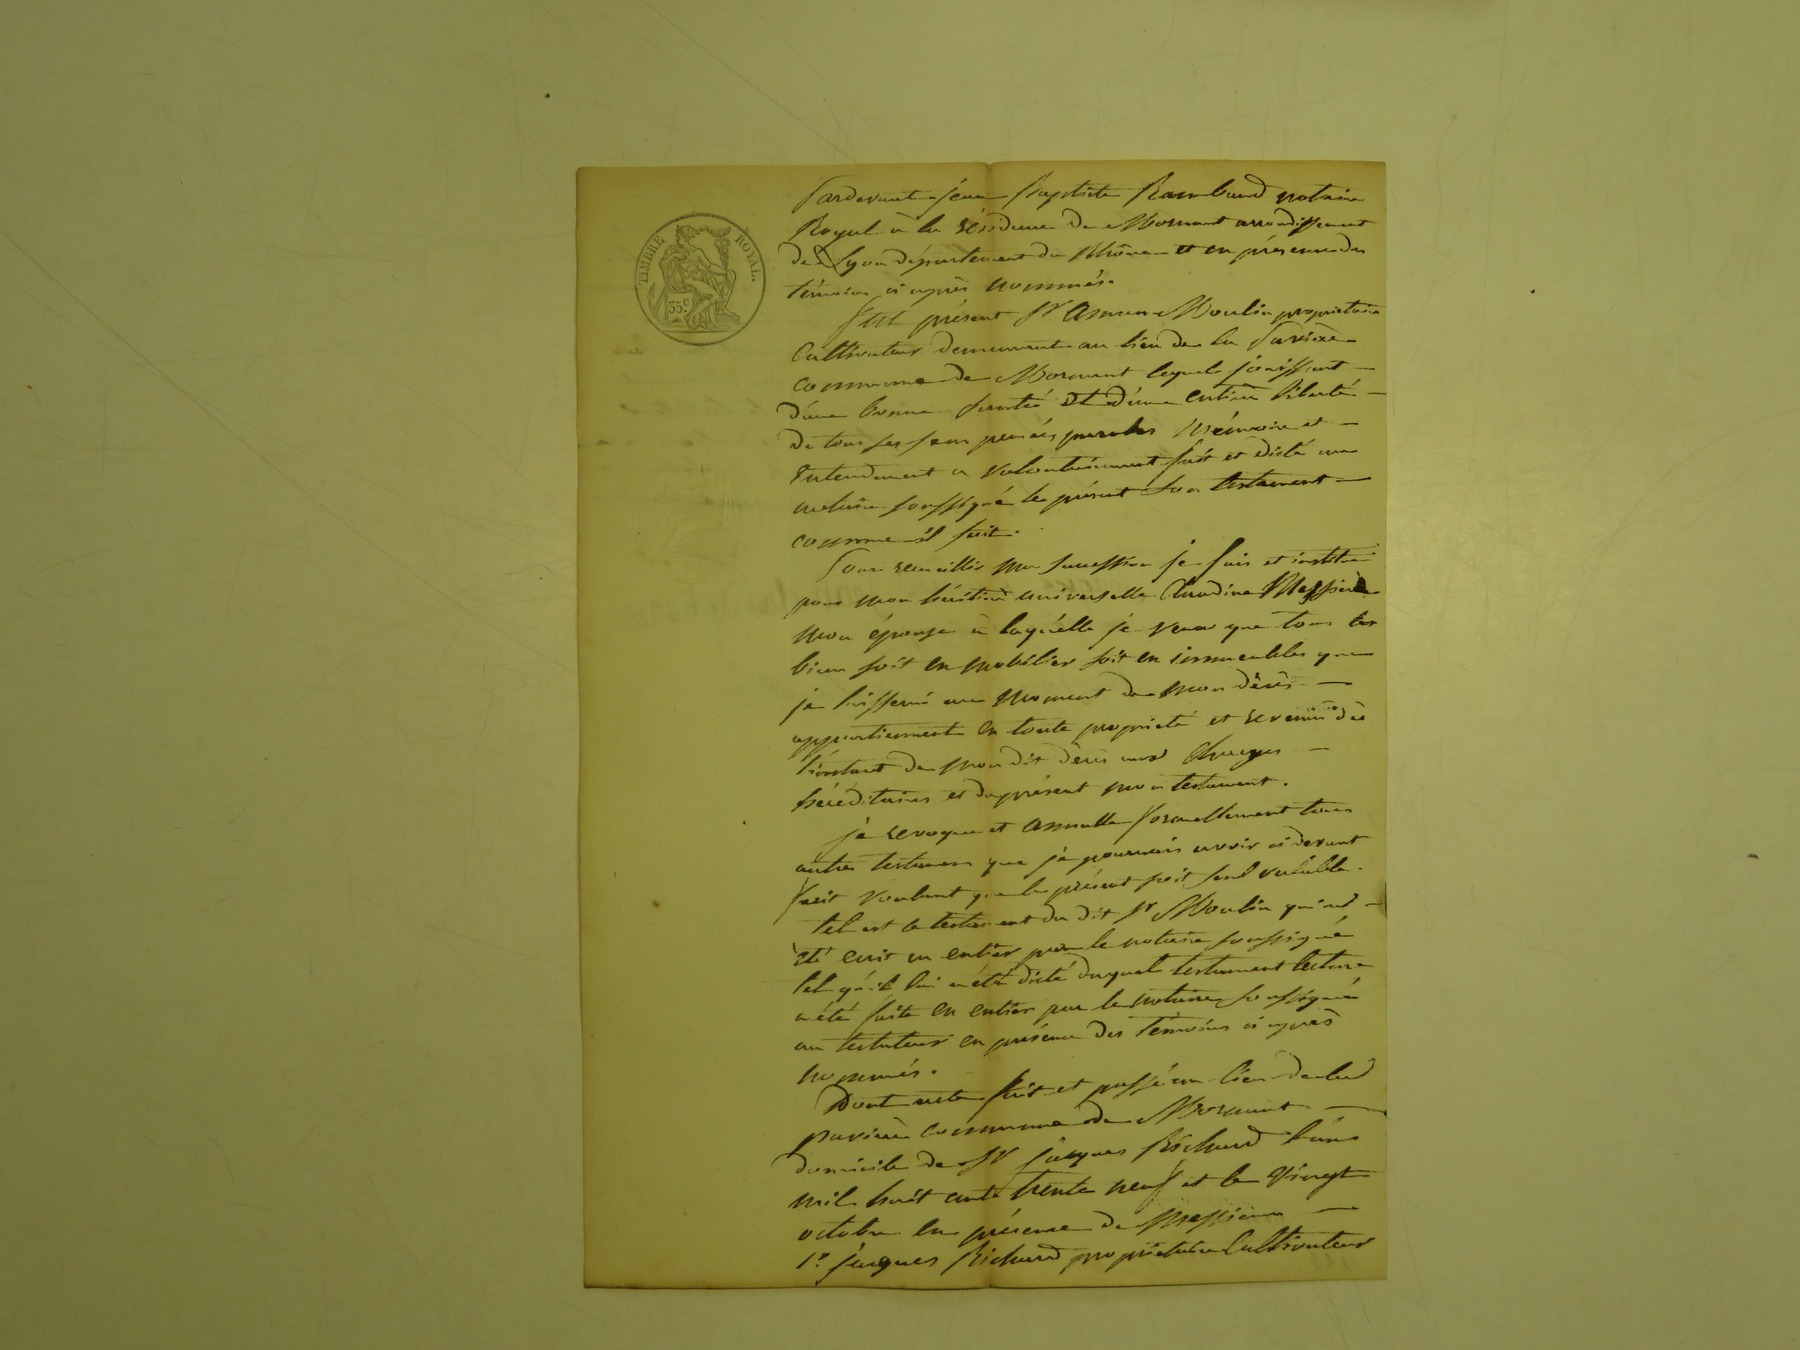 TIMBRE ROYAL.
35.c
Pardevant Jean Baptiste Rambaud notaire
Royal à la résidence de Mornant arrondissement
de Lyon département du Rhône et en présence des
témoins ci après nommés.
Fut présent Sr Moulin propriétaire
Cultivateur demeurant au lieu de la Pavière
commune de Mornant lequel jouissant
d'une bonne santé et d'une entière liberté
de tous ses sens pensées paroles mémoire et
Entendement a volontairement fait et dicté au
notaire soussigné le présent son testament
comme il suit.
Pour recueillir ma succession je fais et institue
pour mon héritière universelle Claudine
mon épouse à laquelle je veux que tous les
biens soit en mobilier soit en immeubles que
je laisserai au moment de mon décès
appartiennent en toute propriété et revenu dès
l'instant de mon dit décès aux charges
héréditaires et du présent mon testament.
je revoque et annulle formellement tous
autres testamens que je pourrais avoir ci devant
fait voulant que le présent soit seul valable.
tel est le testament du dit Sr Moulin qui a
été écrit en entier par le notaire soussigné
tel qu'il lui a été dicté duquel testament lecture
a été faite en entier par le notaire soussigné
au testateur en présence des témoins ci après
nommés.
Dont acte fait et passé au lieu de la
pavière commune de Mornant
domicile de Sr Jacques Richard l'an
mil huit cent trente neuf et le vingt
octobre en présence de Messieurs
1o. Jacques Richard propriétaire Cultivateur